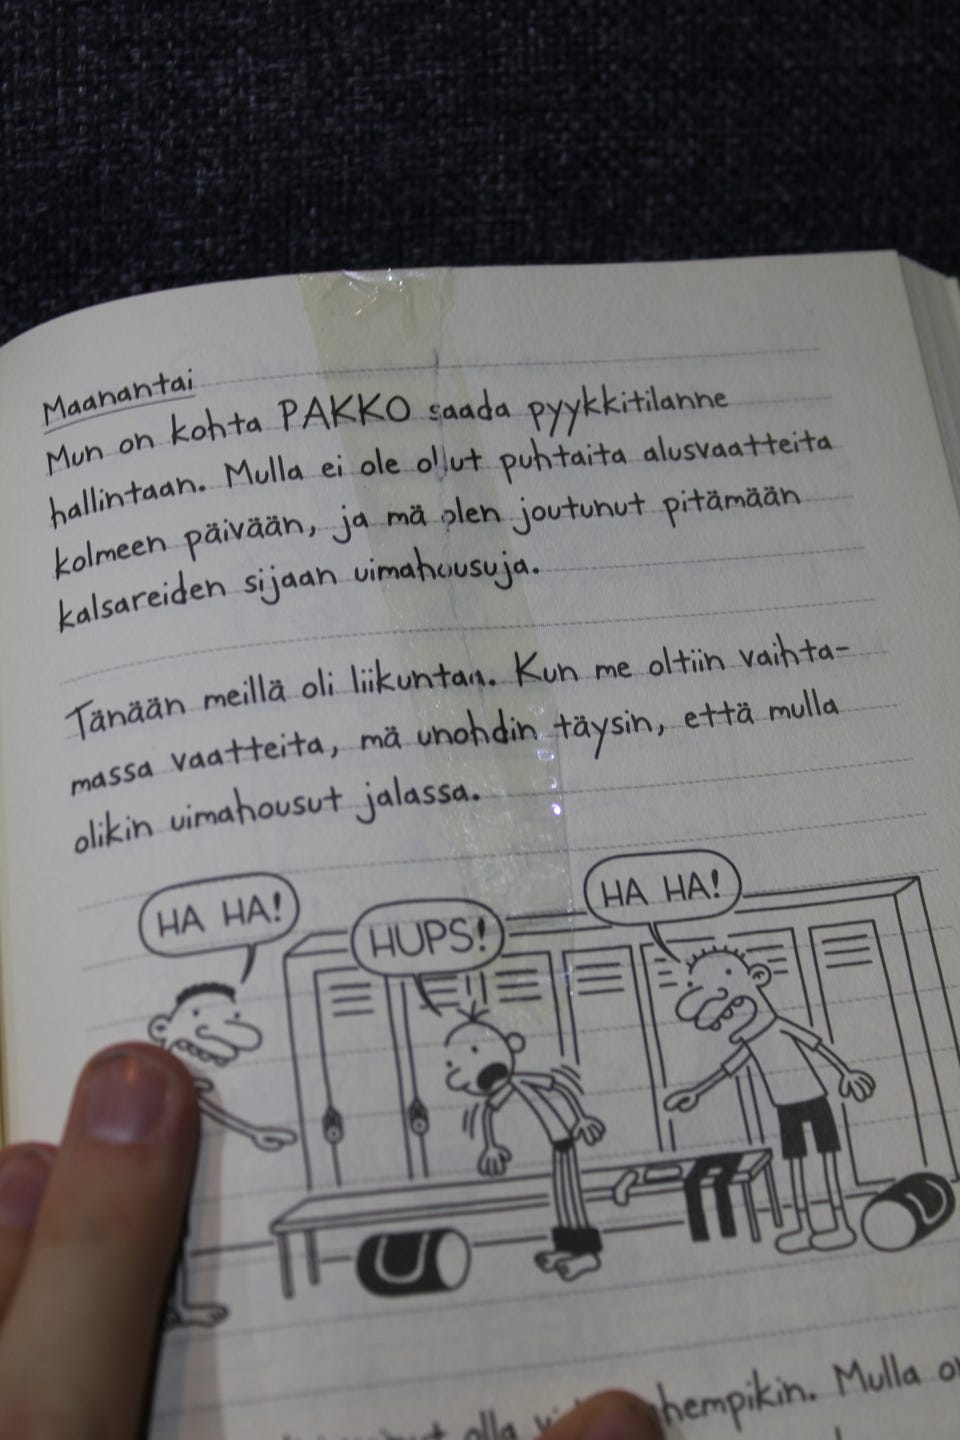 Maanantai
Mun on kohta PAKKO saada pyykkitilanne
hallintaan. Mulla ei ole ollut puhtaita alusvaatteita
kolmeen päivään, ja mä olen joutunut pitämään
kalsareiden sijaan uimahousuja.
Tänään meillä oli liikuntaa. Kun me oltiin vaihta-
massa vaatteita, mä unohdin täysin, että mulla
olikin uimahousut jalassa.
HA HA!
HUPS!
HA HA!
olla
Mulla